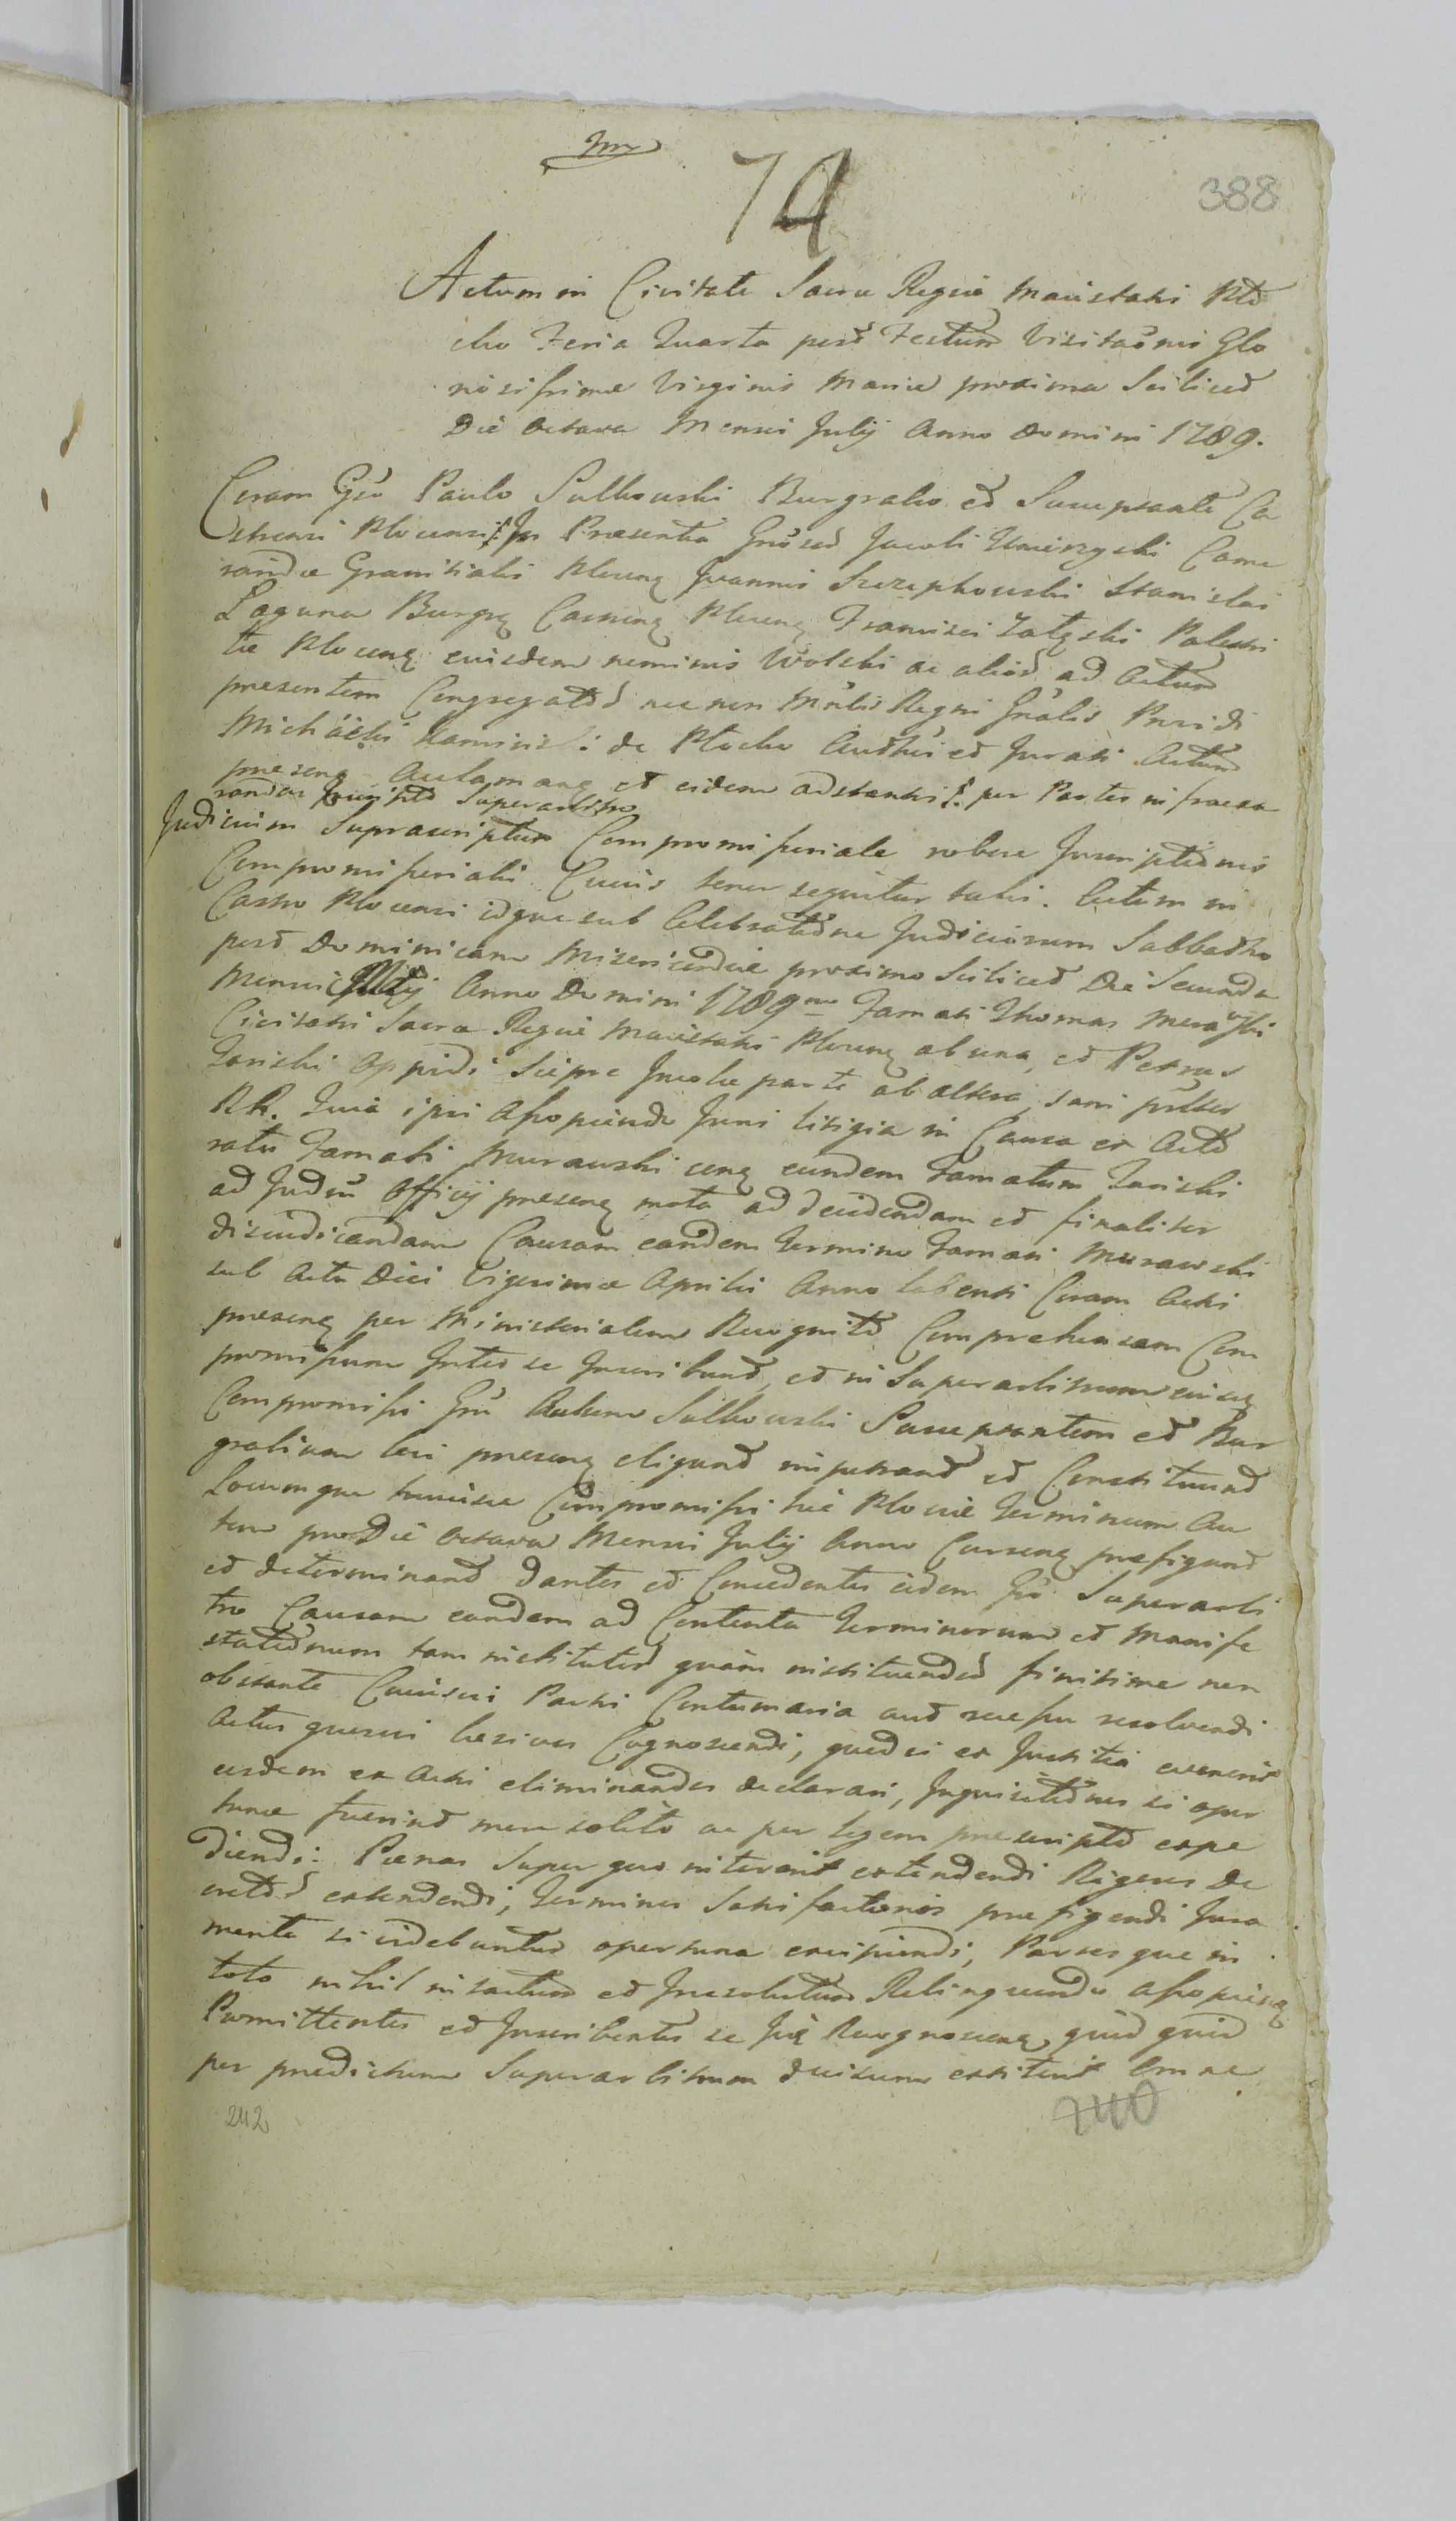 74
388
Actum in Civitate Sacra Regia Maiestatis Plo
cko Feria Quarta post Festum Visitaōnis Glo
riosissimae Virginis Mariae proxima Scilicet
Die Octava Mensis Julij Anno Domini 1789.
Coram Gso Paulo Sulkowski Burgrabio et Susceptante Ca
strensi Plocensi In Praesentia Gnosor Jacobi Came
Granitialis Plocens Joannis Szczepkowski Stanislai
Laguna Burgs Castrens Plocens Francisci Załęski Palesti
tae Plocens eiusdem nominis Wolski ac alior ad Actum
presentem Congregator nec non Mnlis Regni Gnalis Provi di
Michaelis Kaminski de Plocko Authēi et Jurati Actum
presens Aulamque et eidem adstantis per Partes infraexa
randas Suscipto Superarbitro
Judicium Suprascriptum Compromissoriale robore Inscriptionis
Compromissorialis Cuius tenor sequitur talis. Actum in
Castro Plocensi idque sub Celebratione Judiciorum Sabbatho
post Dominicam Misericordiae proximo Scilicet Die Secunda
Mensis Maij Anno Domini 1789no Famati Thomas Murawski
Civitatis Sacra Regia Maiestatis Plocens ab una, et Petrus
Turiski Oppidi Sierpc Incola parte ab altera, sani pnlter
RR. Quia ipsi Assopiendo Juris litigia in Causa ex Actō
ratu Famati Murawski cong eundem Famatum Turiski
ad Judm Officij presens mota ad decidendam et finaliter
diiudicandam Causam eandem Termino Famati Murawski
sub Actu Diei Vigesima Aprilis Anno labenti Coram Actis
presens per Ministerialem Recognito Comprehensam Com
promissum Inter se Inscribunt, et in Superarbitrum eius
Compromissi Gsm Paulum Sulkowski Susceptantem et Bur
grabium loci presens eligunt impetrant et Constituunt
Locumque huiusce Compromissi hic Plociae Terminum Au
tem pro Die Octava Mensis Julij Anno Currens praefigunt
et determinant Dantes et Concedentes eidem Gso Superarbi
tro Causam eandem ad Contenta Terminorum et Manife
stationum tam institutor quam instituendor finitive non
obstante Cuiusvis Partis Contumacia aut recessu resolvendi
Actus quosvis laesivos Cognoscendi, quod si ex Justitia evenerit
eosdem ex Actis eliminandos declarari, Inquisitiones si opor
tunae fuerint more solito ac per legem prescripto expe
diendi: Paenas Super quo intererit extendendi Rigores De
cretor extendendi, Terminos Satisfactionis praefigendi Jura
menta si videbuntur opportuna excipiendi, Partesque in
toto nihil intactum et Irresolutum Relinquendo assopiens
Promittentes et Inscribentes se hic Recognoscens quid quid
per praedictum Superarbitrum decisum extiterit Omne
242
240